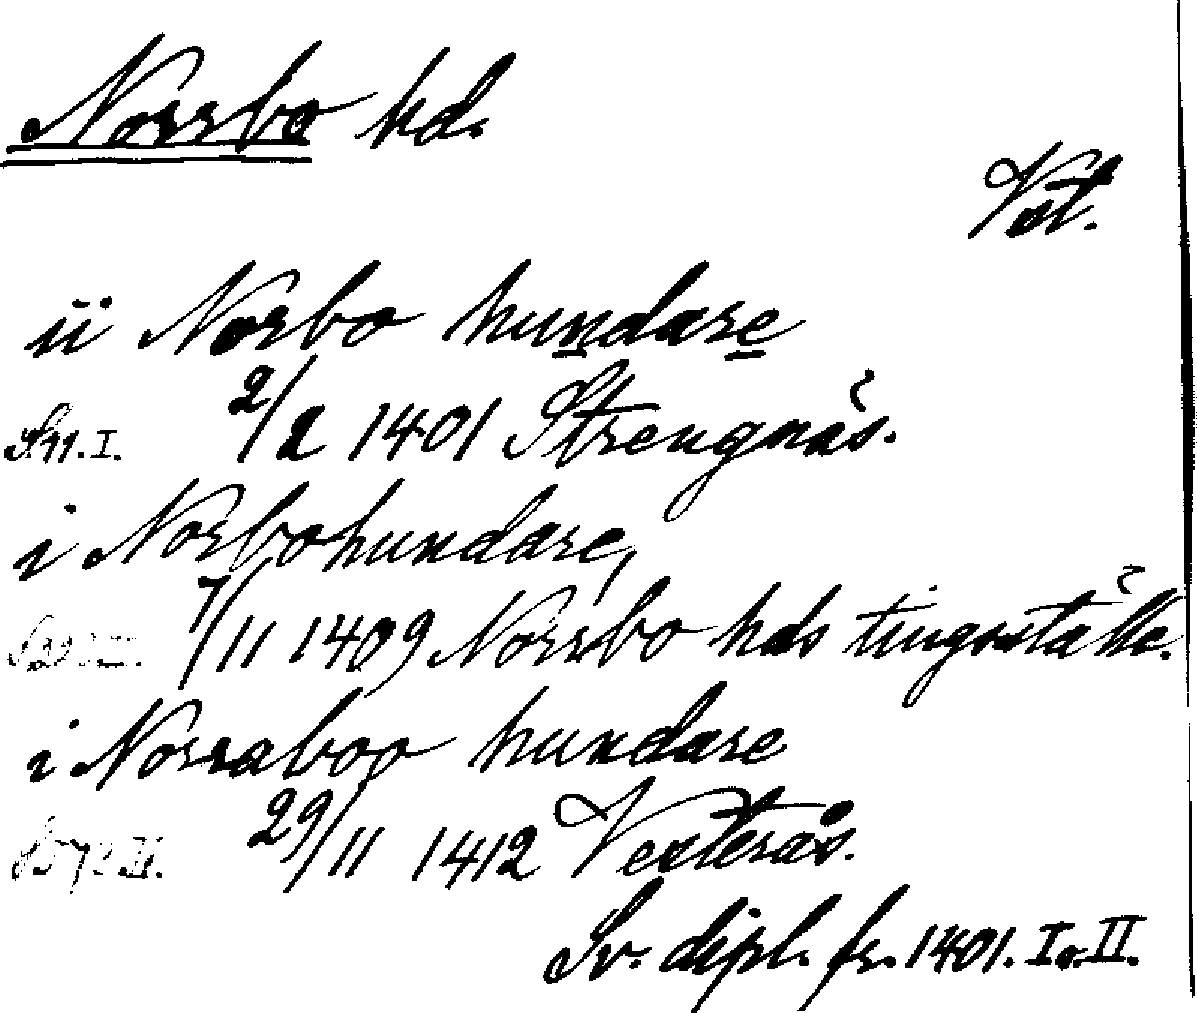 Norrbo hd.
Vstl.
ii Norbo hundare
2/2 1401 Strengnäs.
i Norbohundare,
7/11 1409 Norrbo hds tingställe.
i Norraboo hundare
29/11 1412 Vesterås.
Sv. dipl. fr. 1401. I o. II.